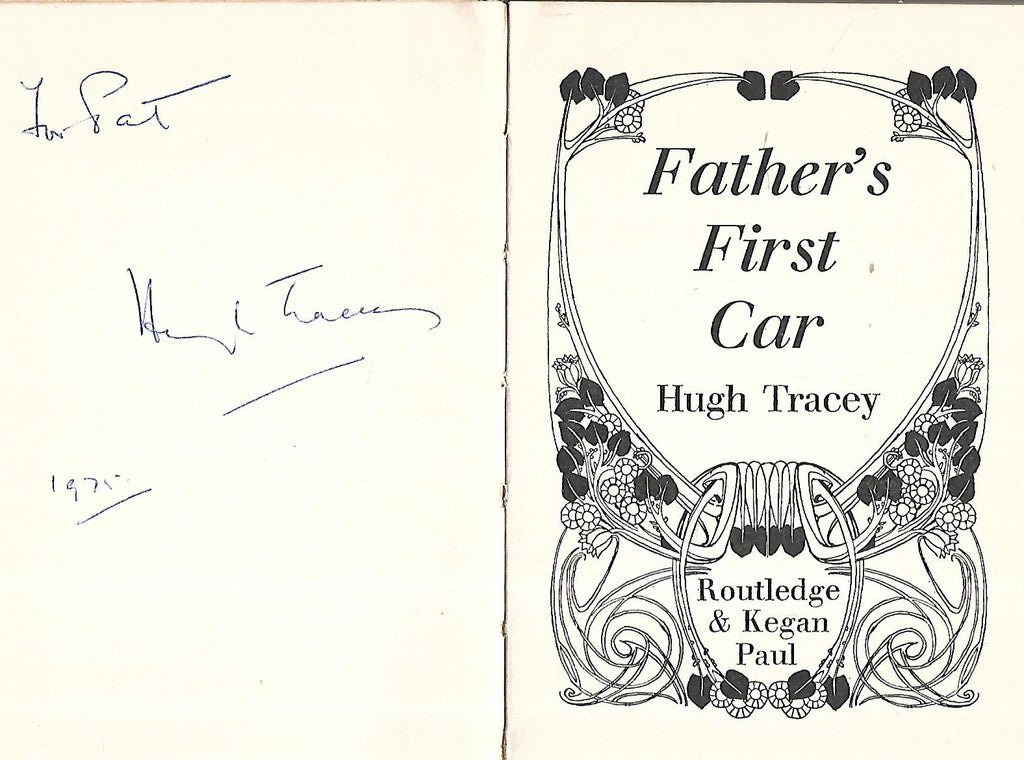 For Pat
Hugh Tracey
1975
Father's
First
Car
Hugh Tracey
Routledge
& Kegan
Paul